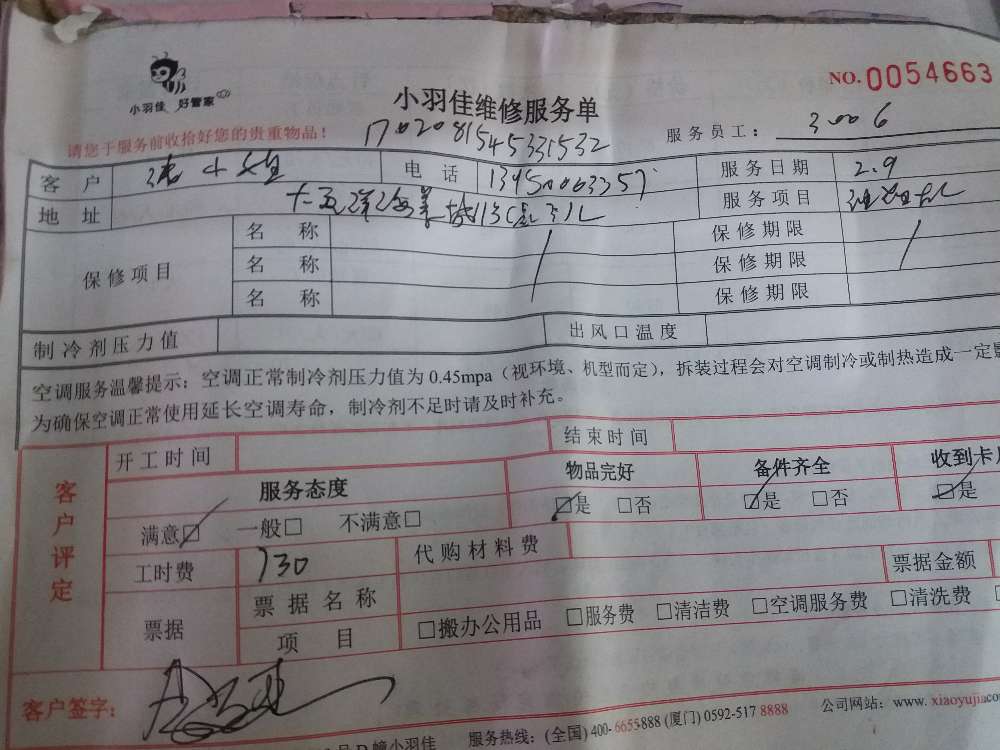 小羽佳 好管家
NO.0054663
小羽佳维修服务单
请您于服务前收拾好您的贵重物品！
1702081545331532
服务员工： 3006
客户 电话 服务日期 2.9
地址 服务项目
保修项目 名称 保修期限
名称 保修期限
名称 保修期限
制冷剂压力值 出风口温度
空调服务温馨提示：空调正常制冷剂压力值为0.45mpa（视环境、机型而定），拆装过程会对空调制冷或制热造成一定
为确保空调正常使用延长空调寿命，制冷剂不足时请及时补充。
客户评定
开工时间 结束时间
服务态度 物品完好 备件齐全 收到卡
满意☑ 一般□ 不满意□ ☑是 □否 ☑是 □否 ☑是
工时费 130 代购材料费 票据金额
票据 票据名称
项目 □搬办公用品 □服务费 □清洁费 □空调服务费 □清洗费
客户签字：
幢小羽佳 服务热线：(全国) 400-6655888 (厦门) 0592-517 8888 公司网站：www.xiaoyujia.co